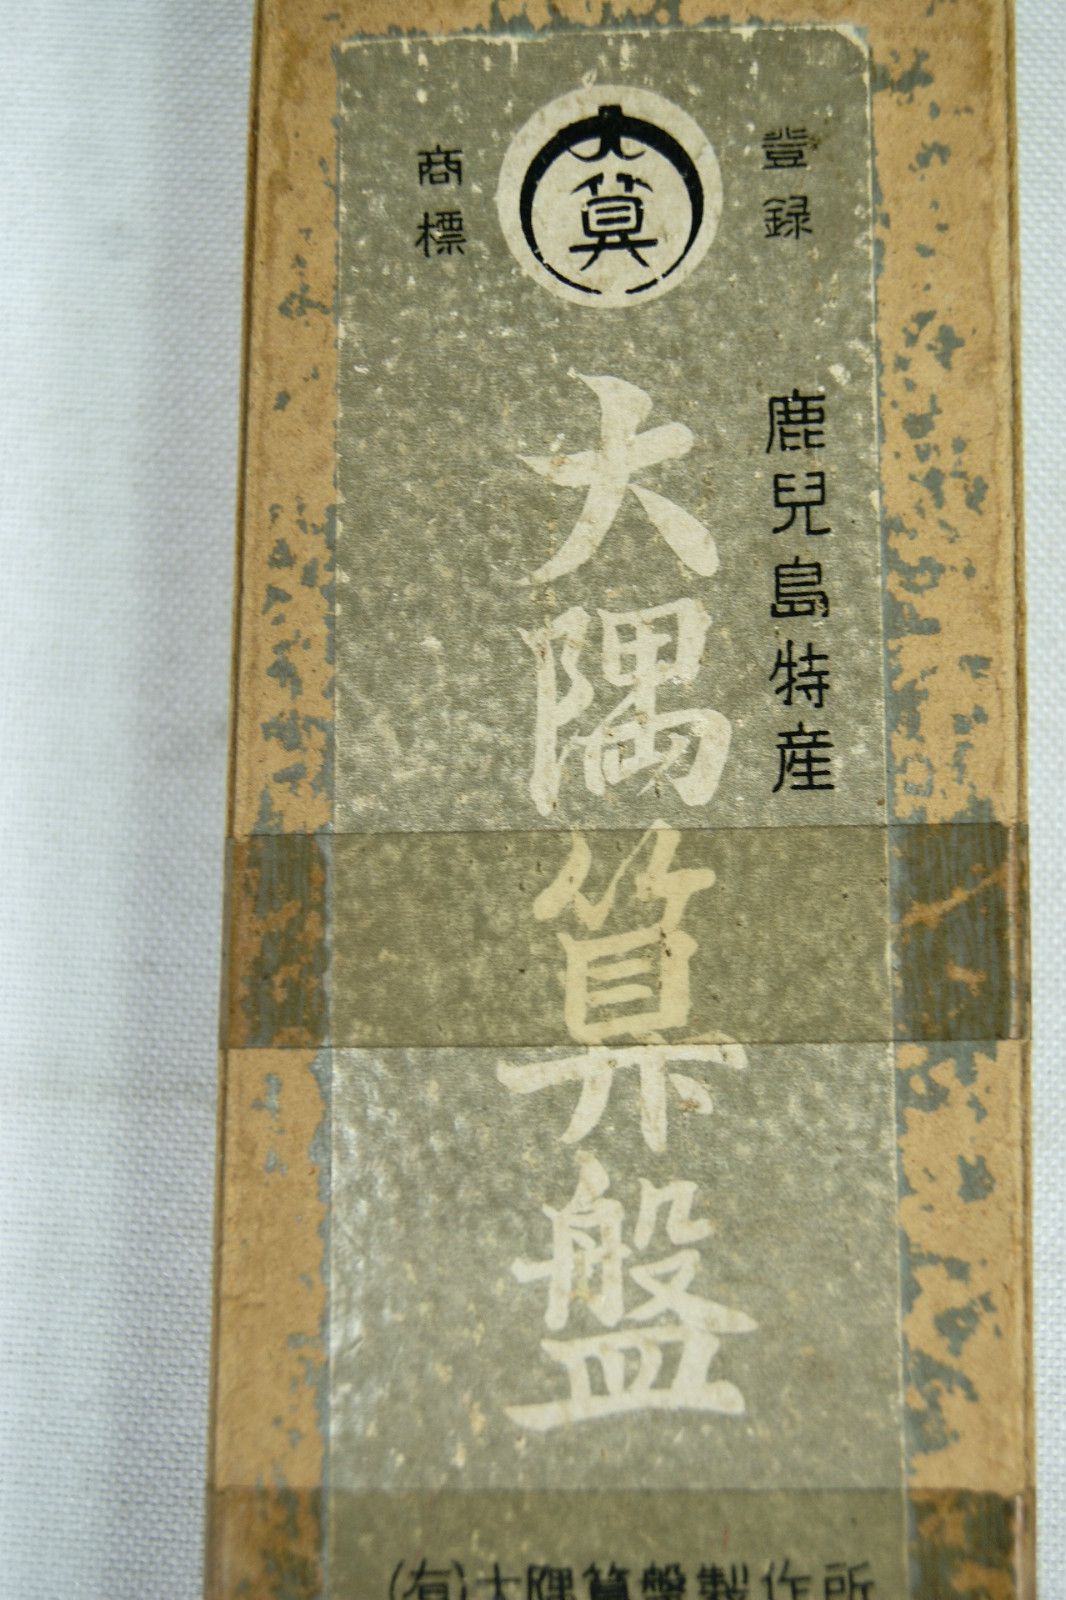 登録
商標
大算
鹿兒島特産
大隅算盤
(有)大隅算盤製作所